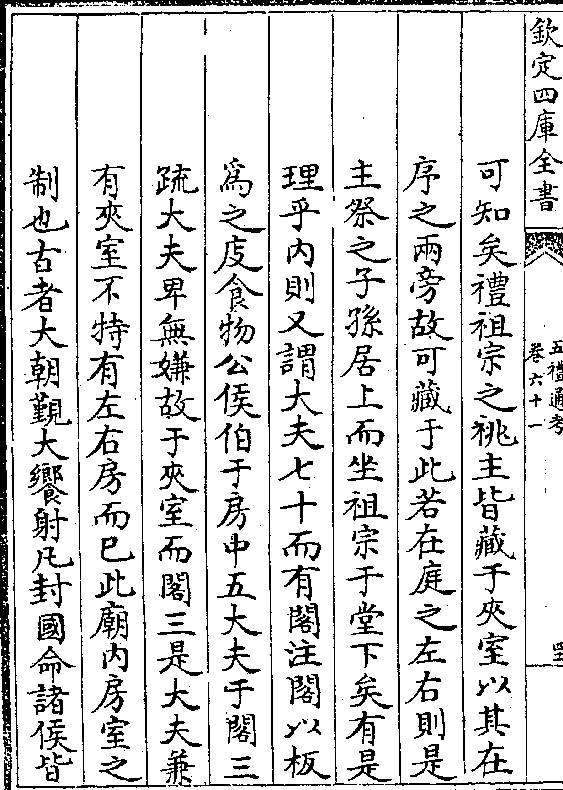 欽定四庫全書
五禮通考
卷六十一
可知矣禮祖宗之祧主皆藏于夾室以其在
序之兩旁故可藏于此若在庭之左右則是
主祭之子孫居上而坐祖宗于堂下矣有是
理乎內則又謂大夫七十而有閣注閣以板
為之庋食物公侯伯于房中五大夫于閣三
疏大夫卑無嫌故于夾室而閣三是大夫兼
有夾室不特有左右房而已此廟內房室之
制也古者大朝覲大饗射凡封國命諸侯皆